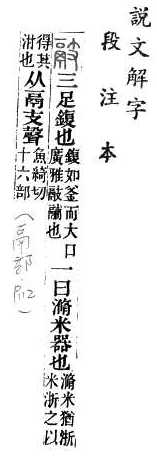 說文解字
段注本
䰙三足鍑也鍑如釜而大口
廣雅䰙鬴也一曰滫米器也滫米猶淅
米淅之以
得其
泔也从鬲支聲魚綺切
十六部(鬲部P112)